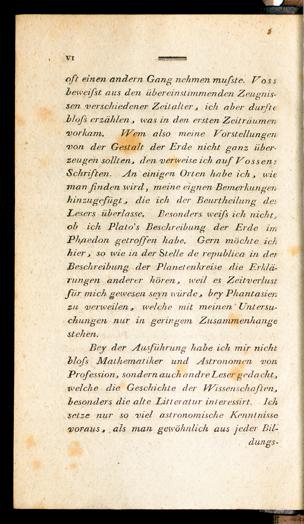 VI
oft einen andern Gang nehmen mufste. Voss
beweifst aus den übereinstimmenden Zeugnis-
sen verschiedener Zeitalter, ich aber durfte
blofs erzählen, was in den ersten Zeiträumen
vorkam. Wem also meine Vorstellungen
von der Gestalt der Erde nicht ganz über-
zeugen sollten, den verweise ich auf Vossens
Schriften. An einigen Orten habe ich, wie
man finden wird, meine eignen Bemerkungen
hinzugefügt, die ich der Beurtheilung des
Lesers überlasse. Besonders weifs ich nicht,
ob ich Plato's Beschreibung der Erde im
Phaedon getroffen habe. Gern möchte ich
hier, so wie in der Stelle de republica in der
Beschreibung der Planetenkreise die Erklä-
rungen anderer hören, weil es Zeitverlust
für mich gewesen seyn würde, bey Phantasien
zu verweilen, welche mit meinen Untersu-
chungen nur in geringem Zusammenhange
stehen.
Bey der Ausführung habe ich mir nicht
blofs Mathematiker und Astronomen von
Profession, sondern auch andre Leser gedacht,
welche die Geschichte der Wissenschaften,
besonders die alte Litteratur interessirt. Ich
setze nur so viel astronomische Kenntnisse
voraus, als man gewöhnlich aus jeder Bil-
dungs-